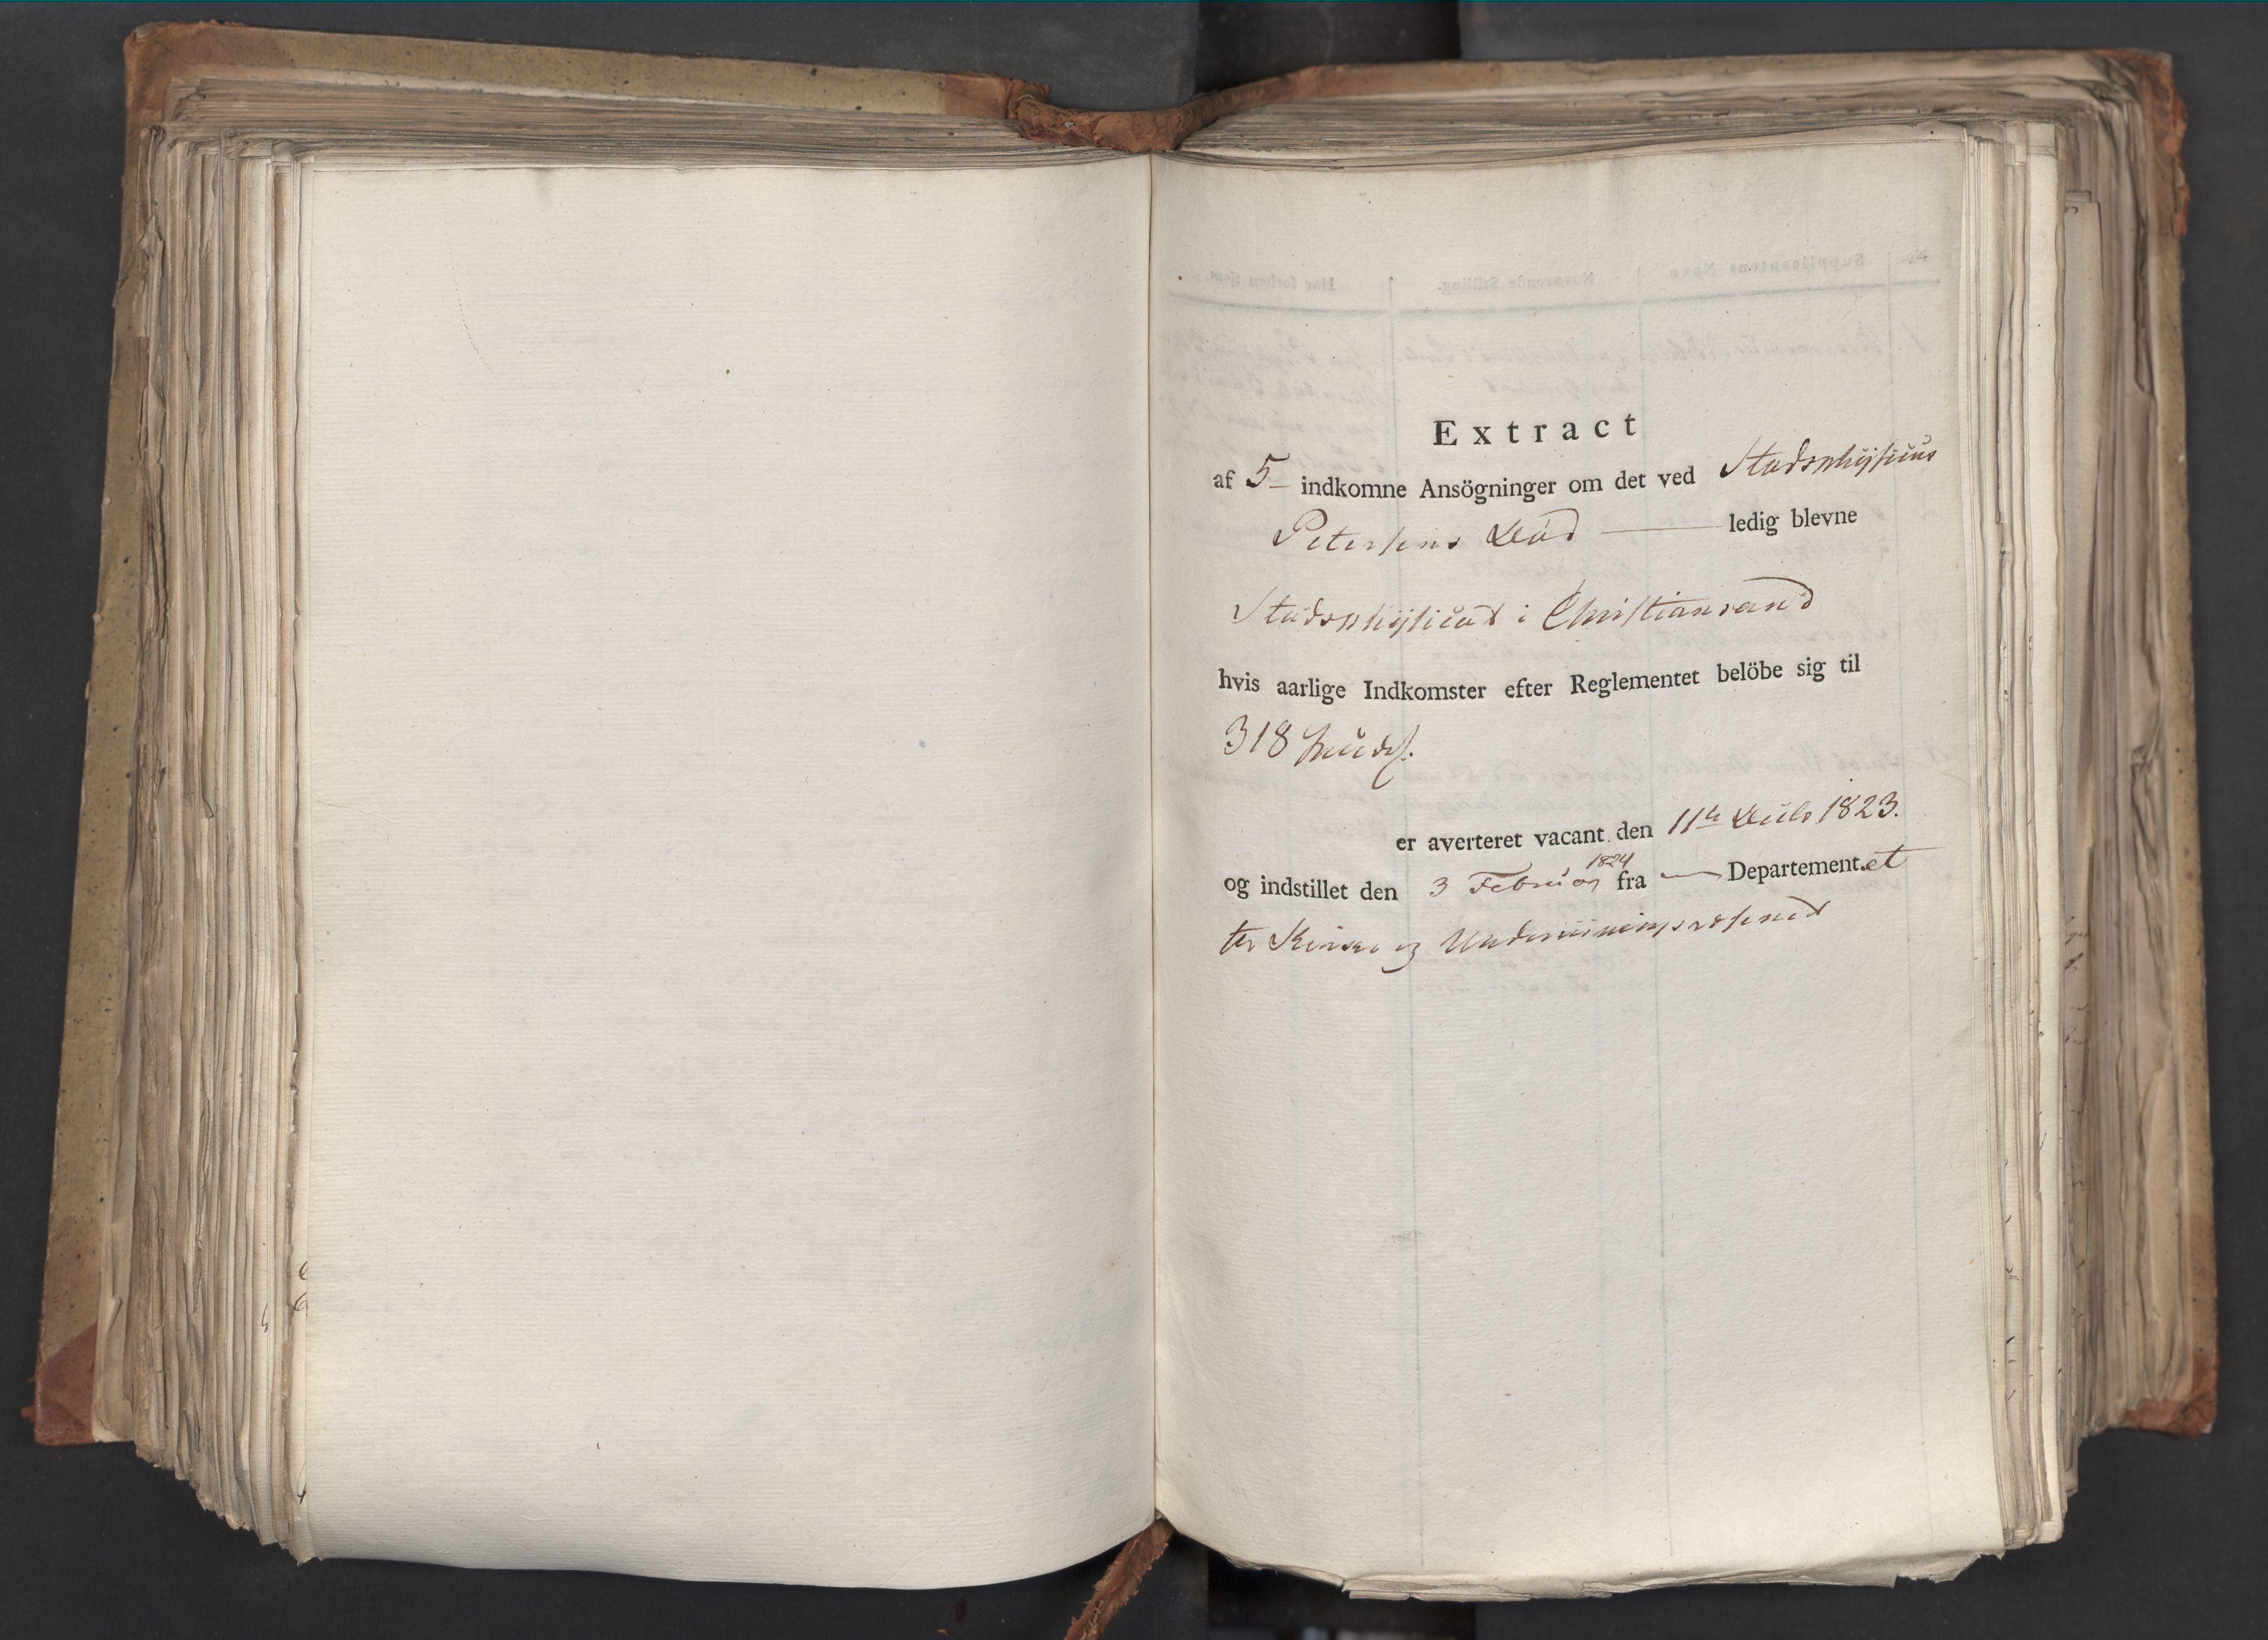 Extract
af 5 indkomne Ansögninger om det ved Stadsphysicus
Petersens Död ledig blevne
Stadsphysicat i Christiansand
hvis aarlige Indkomster efter Reglementet belöbe sig til
318
er averteret vacant den 11te 1823.
1824
og indstillet den 3 Februar fra Departementet
for Kirke og Underviisningsvæsenet